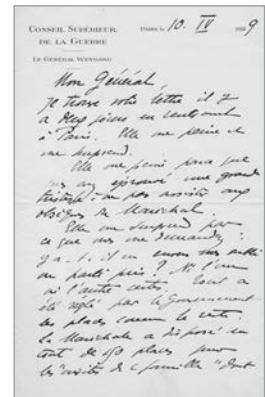 CONSEIL SUPÉRIEUR
DE LA GUERRE
LE GÉNÉRAL WEYGAND
PARIS, le 10. IV 9
Mon Général,
Je trouve votre lettre il y
a deux jours en rentrant
à Paris. Elle me peine et
me surprend.
Elle me peine parce que
une grande
tristesse à ne pas assister aux
obsèques du Maréchal.
Elle me surprend par
ce que vous me demandez :
y a-t-il eu erreur ou oubli
ou parti pris ? Ni l'un
ni l'autre certes. Tout a
été réglé par le Gouvernement
les places comme le reste.
La Maréchale a disposé en
tout de 150 places pour
les invités de famille "dont